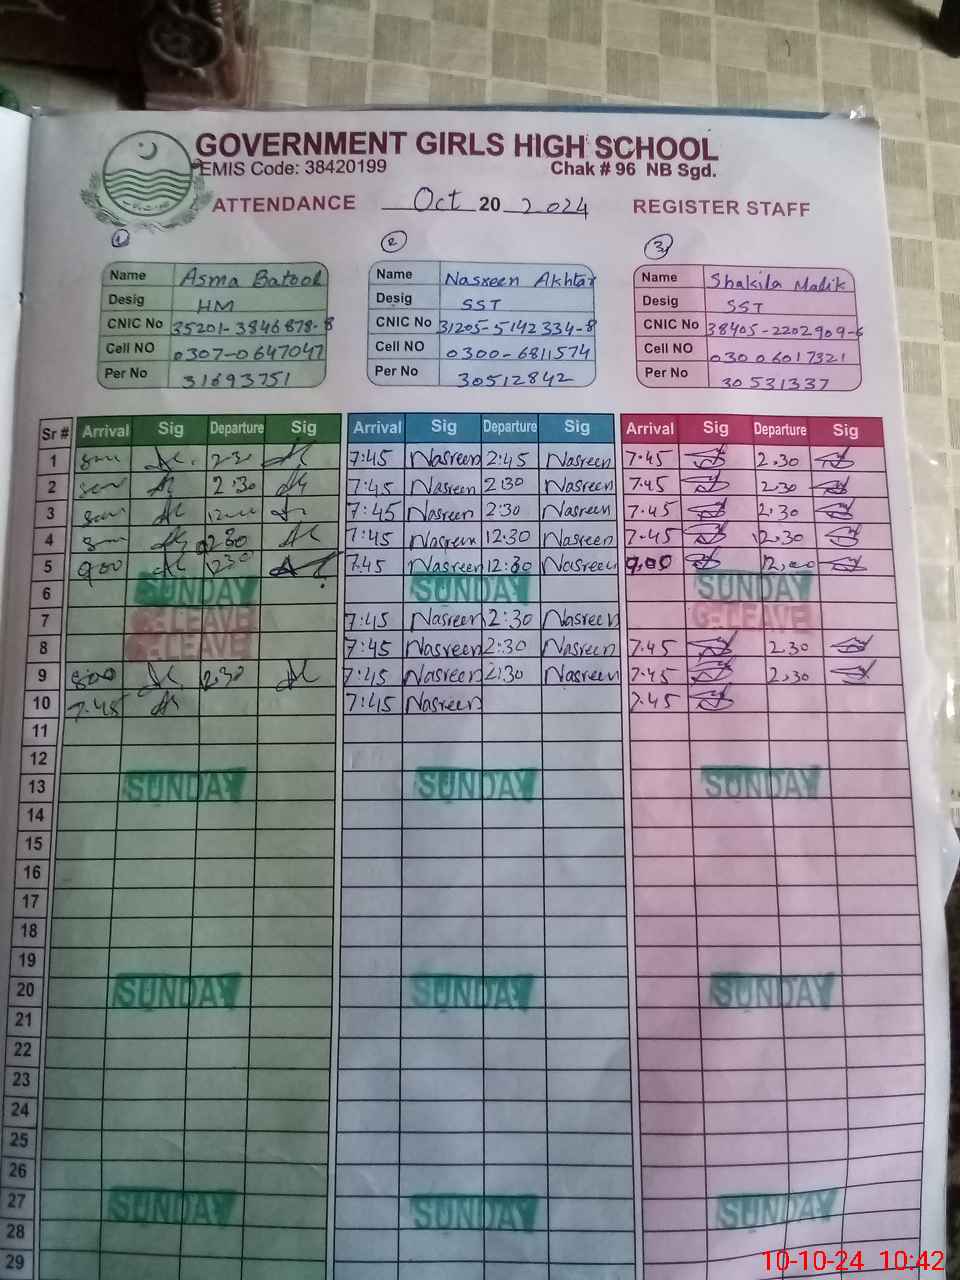 GOVERNMENT GIRLS HIGH SCHOOL
EMIS Code: 38420199 Chak # 96 NB Sgd.
ATTENDANCE Oct 20 2024 REGISTER STAFF
1 2 3
Name Asma Batool Name Nasreen Akhtar Name Shakila Malik
Desig HM Desig SST Desig SST
CNIC No 35201-3846878-8 CNIC No 31205-5142334-8 CNIC No 38405-2202909-6
Cell NO 0307-0647047 Cell NO 0300-6811574 Cell NO 03006017321
Per No 31693751 Per No 30512842 Per No 30531337
Sr # Arrival Sig Departure Sig Arrival Sig Departure Sig Arrival Sig Departure Sig
1 2:30 7:45 Nasreen 2:45 Nasreen 7.45 2.30
2 2:30 7:45 Nasreen 2:30 Nasreen 7.45 2.30
3 7:45 Nasreen 2:30 Nasreen 7.45 2.30
4 7:45 Nasreen 12.30 Nasreen 7.45 12.30
5 900 1230 7.45 Nasreen 12:30 Nasreen 9.00
6 SUNDAY SUNDAY SUNDAY
7 LEAVE 7:45 Nasreen 2:30 Nasreen LEAVE
8 LEAVE 7:45 Nasreen 2:30 Nasreen 7.45 2.30
9 800 2.30 7:45 Nasreen 2:30 Nasreen 7.45 2.30
10 7.45 7:45 Nasreen 7.45
11
12
13 SUNDAY SUNDAY SUNDAY
14
15
16
17
18
19
20 SUNDAY SUNDAY SUNDAY
21
22
23
24
25
26
27 SUNDAY SUNDAY SUNDAY
28
29
10-10-24 10:42